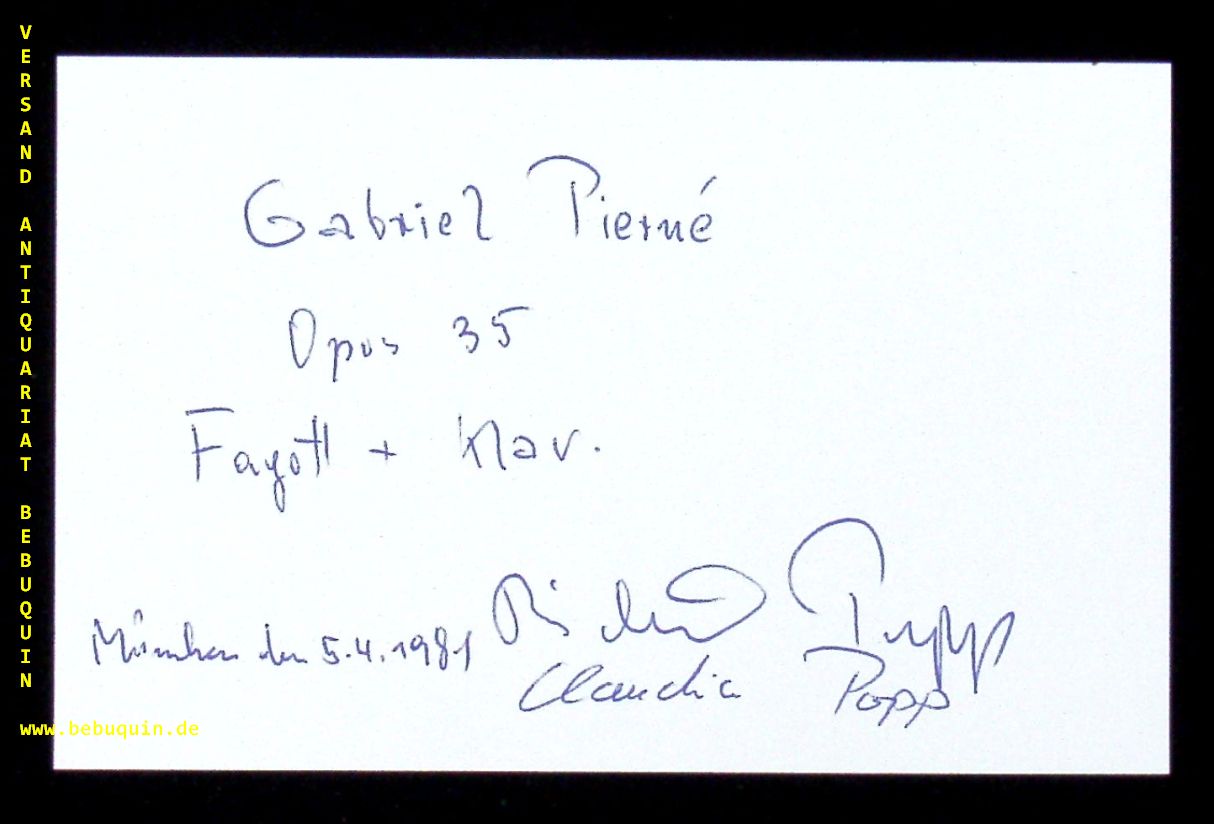 VERSAND ANTIQUARIAT BEBUQUIN
Gabriel Pierné
Opus 35
Fagott + Klav.
München den 5.4.1981 Richard Popp
Claudia Popp
www.bebuquin.de